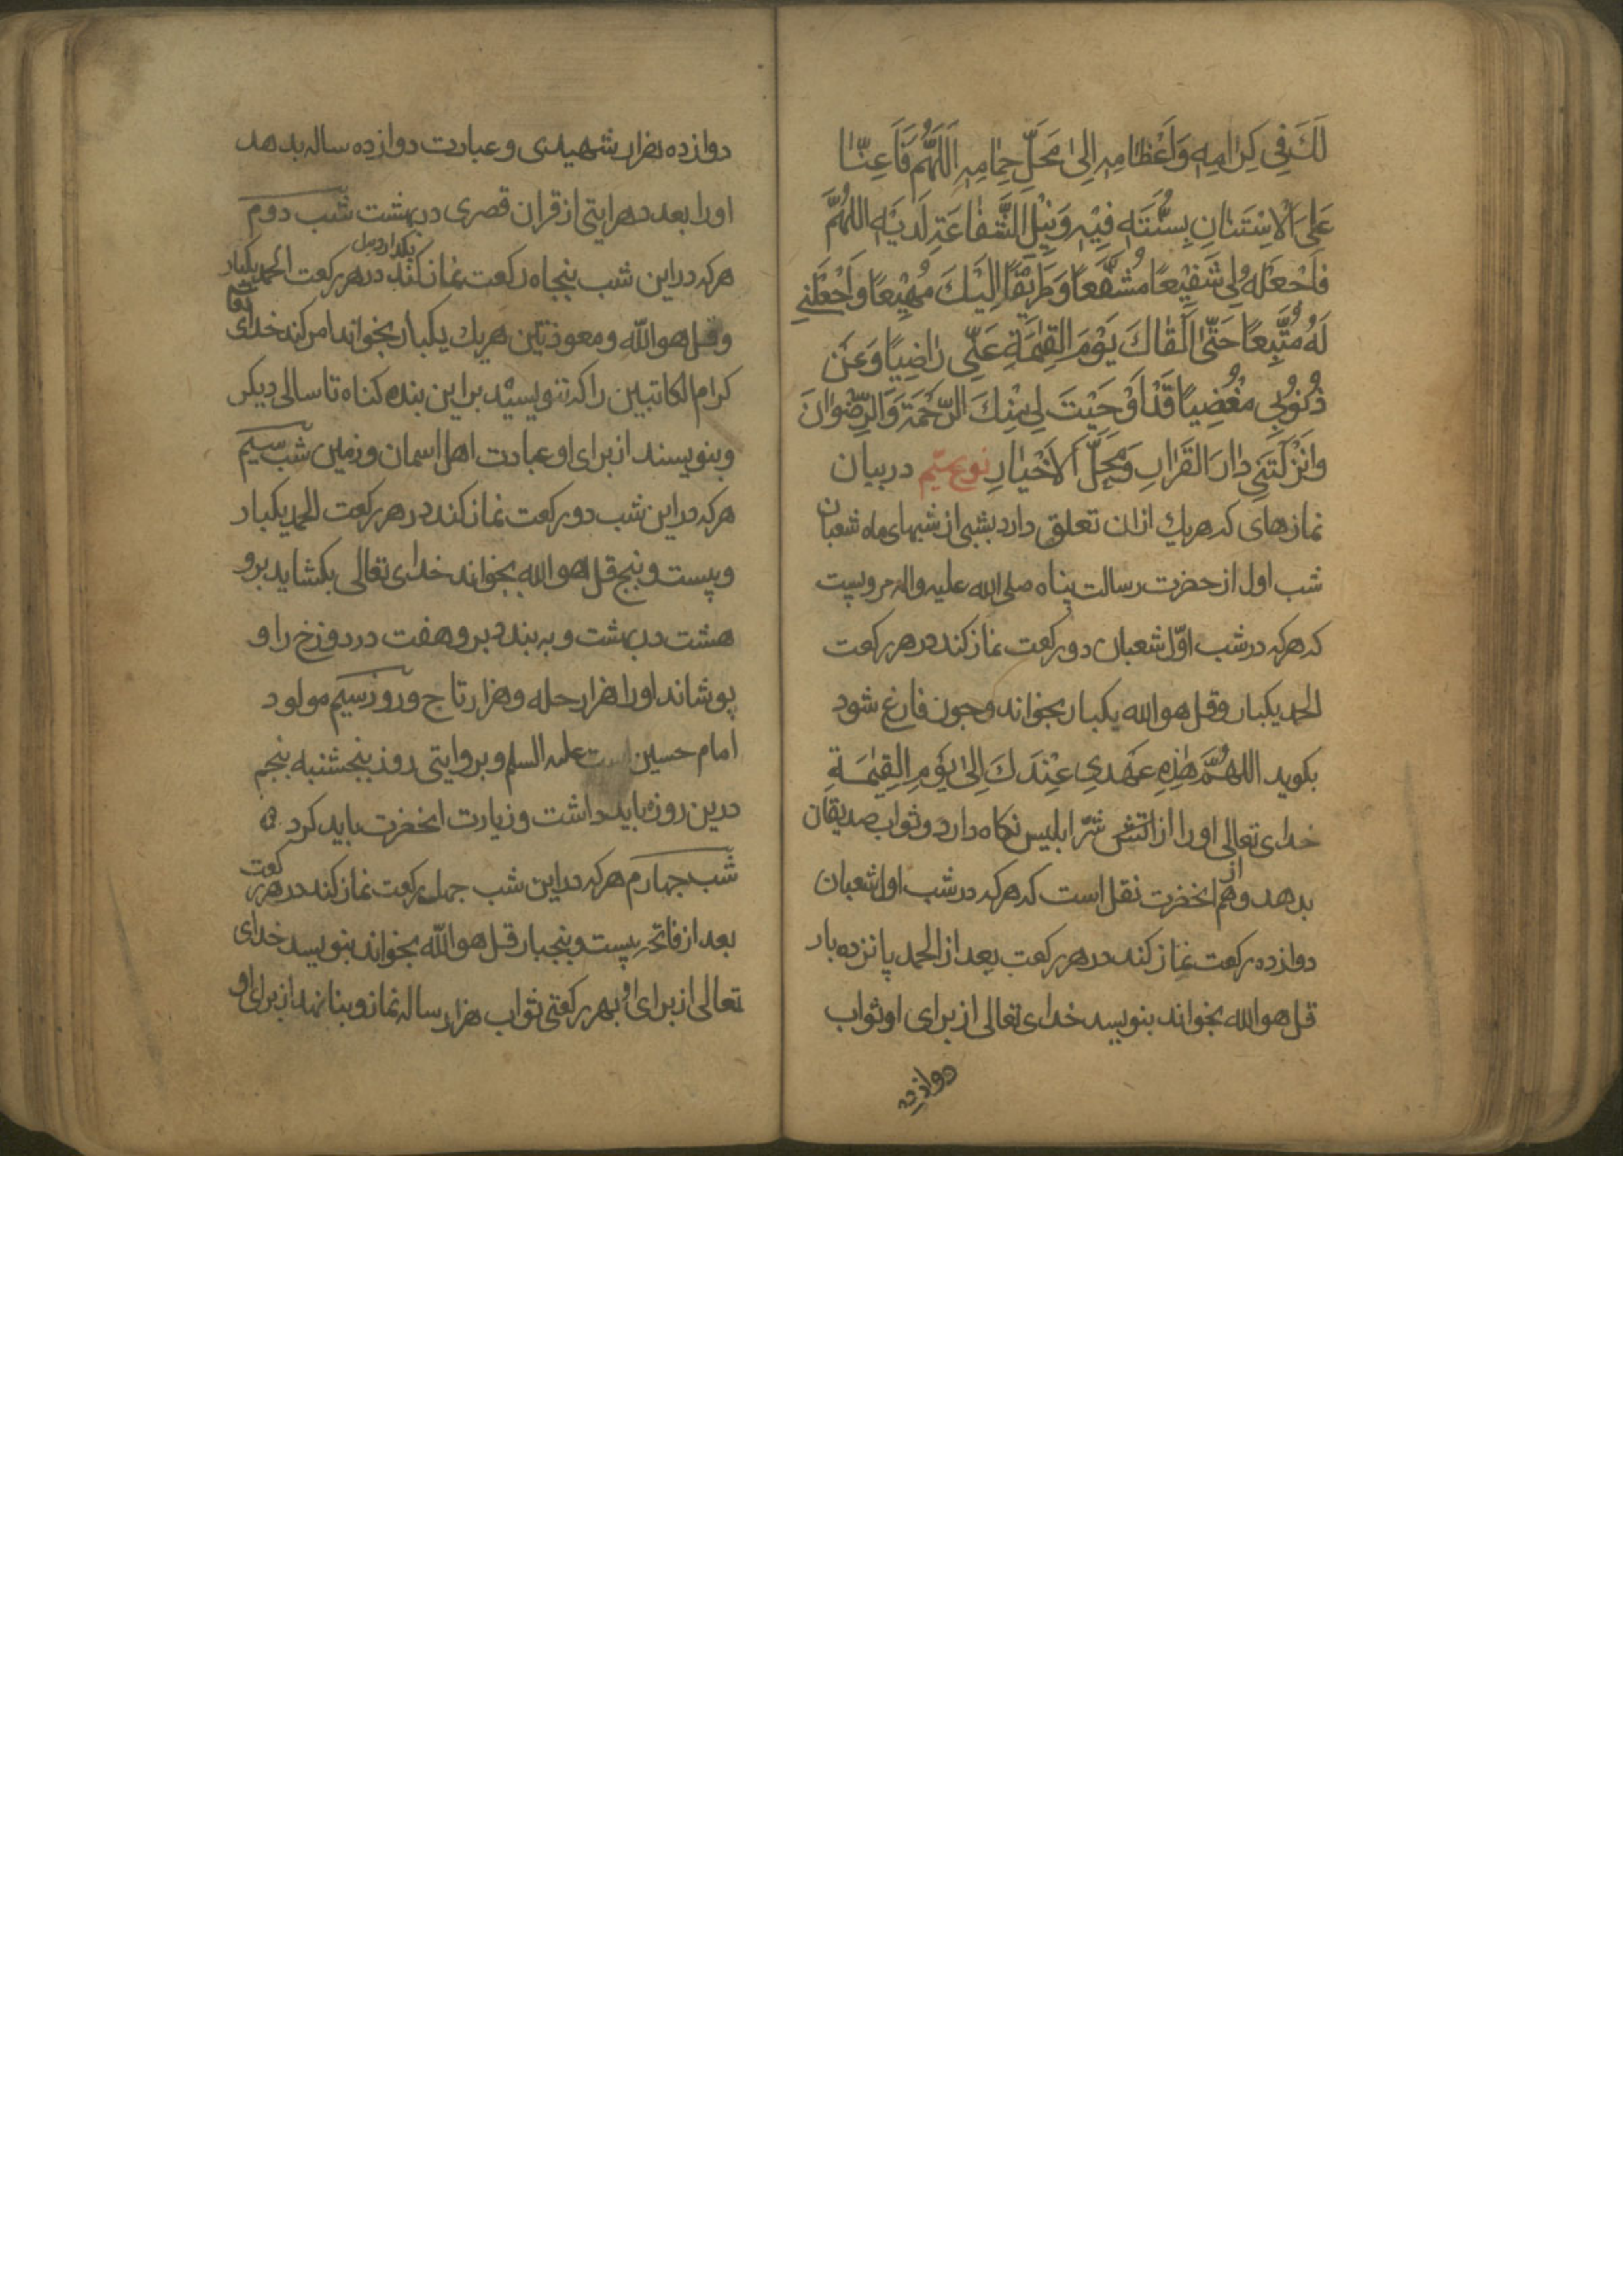 لَكَ فِي كِرٰامِهِ وَاَعْظٰامِهِ اِلىٰ مَحَلِّ حِمٰامِهِ اَللّٰهُمَّ فَاَعِنّٰا
عَلىَ الْاِسْتَنٰانِ بِسُنَّتَهِ فِيْهِ وَنَيْلِ الشَّفٰاعَةِ لَدَيْهِ اللهُمَّ
فَاَجْعَلْهُ لِي شَفِيْعًا مُشَفَّعًا وَطَرِيْقًا اِلَيْكَ مُهِيْعًا وَاَجْعَلْنِي
لَهُ مُتَّبِعًا حَتّىٰ اَلْقٰاكَ يَوْمَ القِيٰمَةِ عَنِّي رٰاضِيًا وَعَنْ
ذُنُوْبِي مغْضِيًا قَدْ اَوْجَبْتَ لِي مِنْكَ الرَّحْمَةَ وَالرِّضْوٰانَ
وَاَنْزَلْتَنِي دٰارَ القَرٰارِ وَمَحَلَّ اَلاَخْيٰارِ نوع سیّم در بیان
نمازهای که هریك ازان تعلق دارد بشبی از شبهای ماه شعبان
شب اول از حضرت رسالت پناه صلی الله علیه واله مرویست
که هرکه در شب اوّل شعبان دو رکعت نماز کند در هر رکعت
الحمد یکبار و قل هو الله یکبار بخواند و چون فارغ شود
بکوید اللهُمَّ هٰذِهِ عَهْدِي عِنْدَكَ اِلىٰ يَوْمِ الْقِيٰمَةِ
خدای تعالی اورا از اتش شرّ ابلیس نکاه دارد و ثواب صدیقان
بدهد و هم از انحضرت نقل است که هرکه در شب اول شعبان
دوازده رکعت نماز کند در هر رکعت بعد از الحمد پانزده بار
قل هو الله بخواند بنویسد خدای تعالی از برای او ثواب
دوازده
دوازده هزار شهیدی و عبادت دوازده ساله بدهد
اورا بعدد هر ایتی از قران قصری در بهشت شب دوم
هرکه در این شب پنجاه رکعت نماز کند در هر رکعت الحمد یکبار
و قل هو الله و معوذتین هریك یکبار بخواند امر کند خدای تعالی
کرام الکاتبین را که ننویسید بر این بنده کناه تا سالی دیکر
و بنویسند از برای او عبادت اهل اسمان و زمین شب سیم
هرکه در این شب دو رکعت نماز کند در هر رکعت الحمد یکبار
و بیست و پنج قل هو الله بخواند خدای تعالی بکشاید برو
هشت در بهشت و به بندد برو هفت در دوزخ را و
بوشاند اورا هزار حله و هزار تاج و روز سیم مولود
امام حسین است علیه السلم و بروایتی روز پنجشنبه پنجم
درین روزه باید داشت و زیارت انحضرت باید کرد
شب چهارم هرکه در این شب چهل رکعت نماز کند در هر رکعت
بعد از فاتحه بیست و پنجبار قل هو الله بخواند بنویسد خدای
تعالی از برای او بهر رکعتی ثواب هزار ساله نماز و بنا نهد از برای او